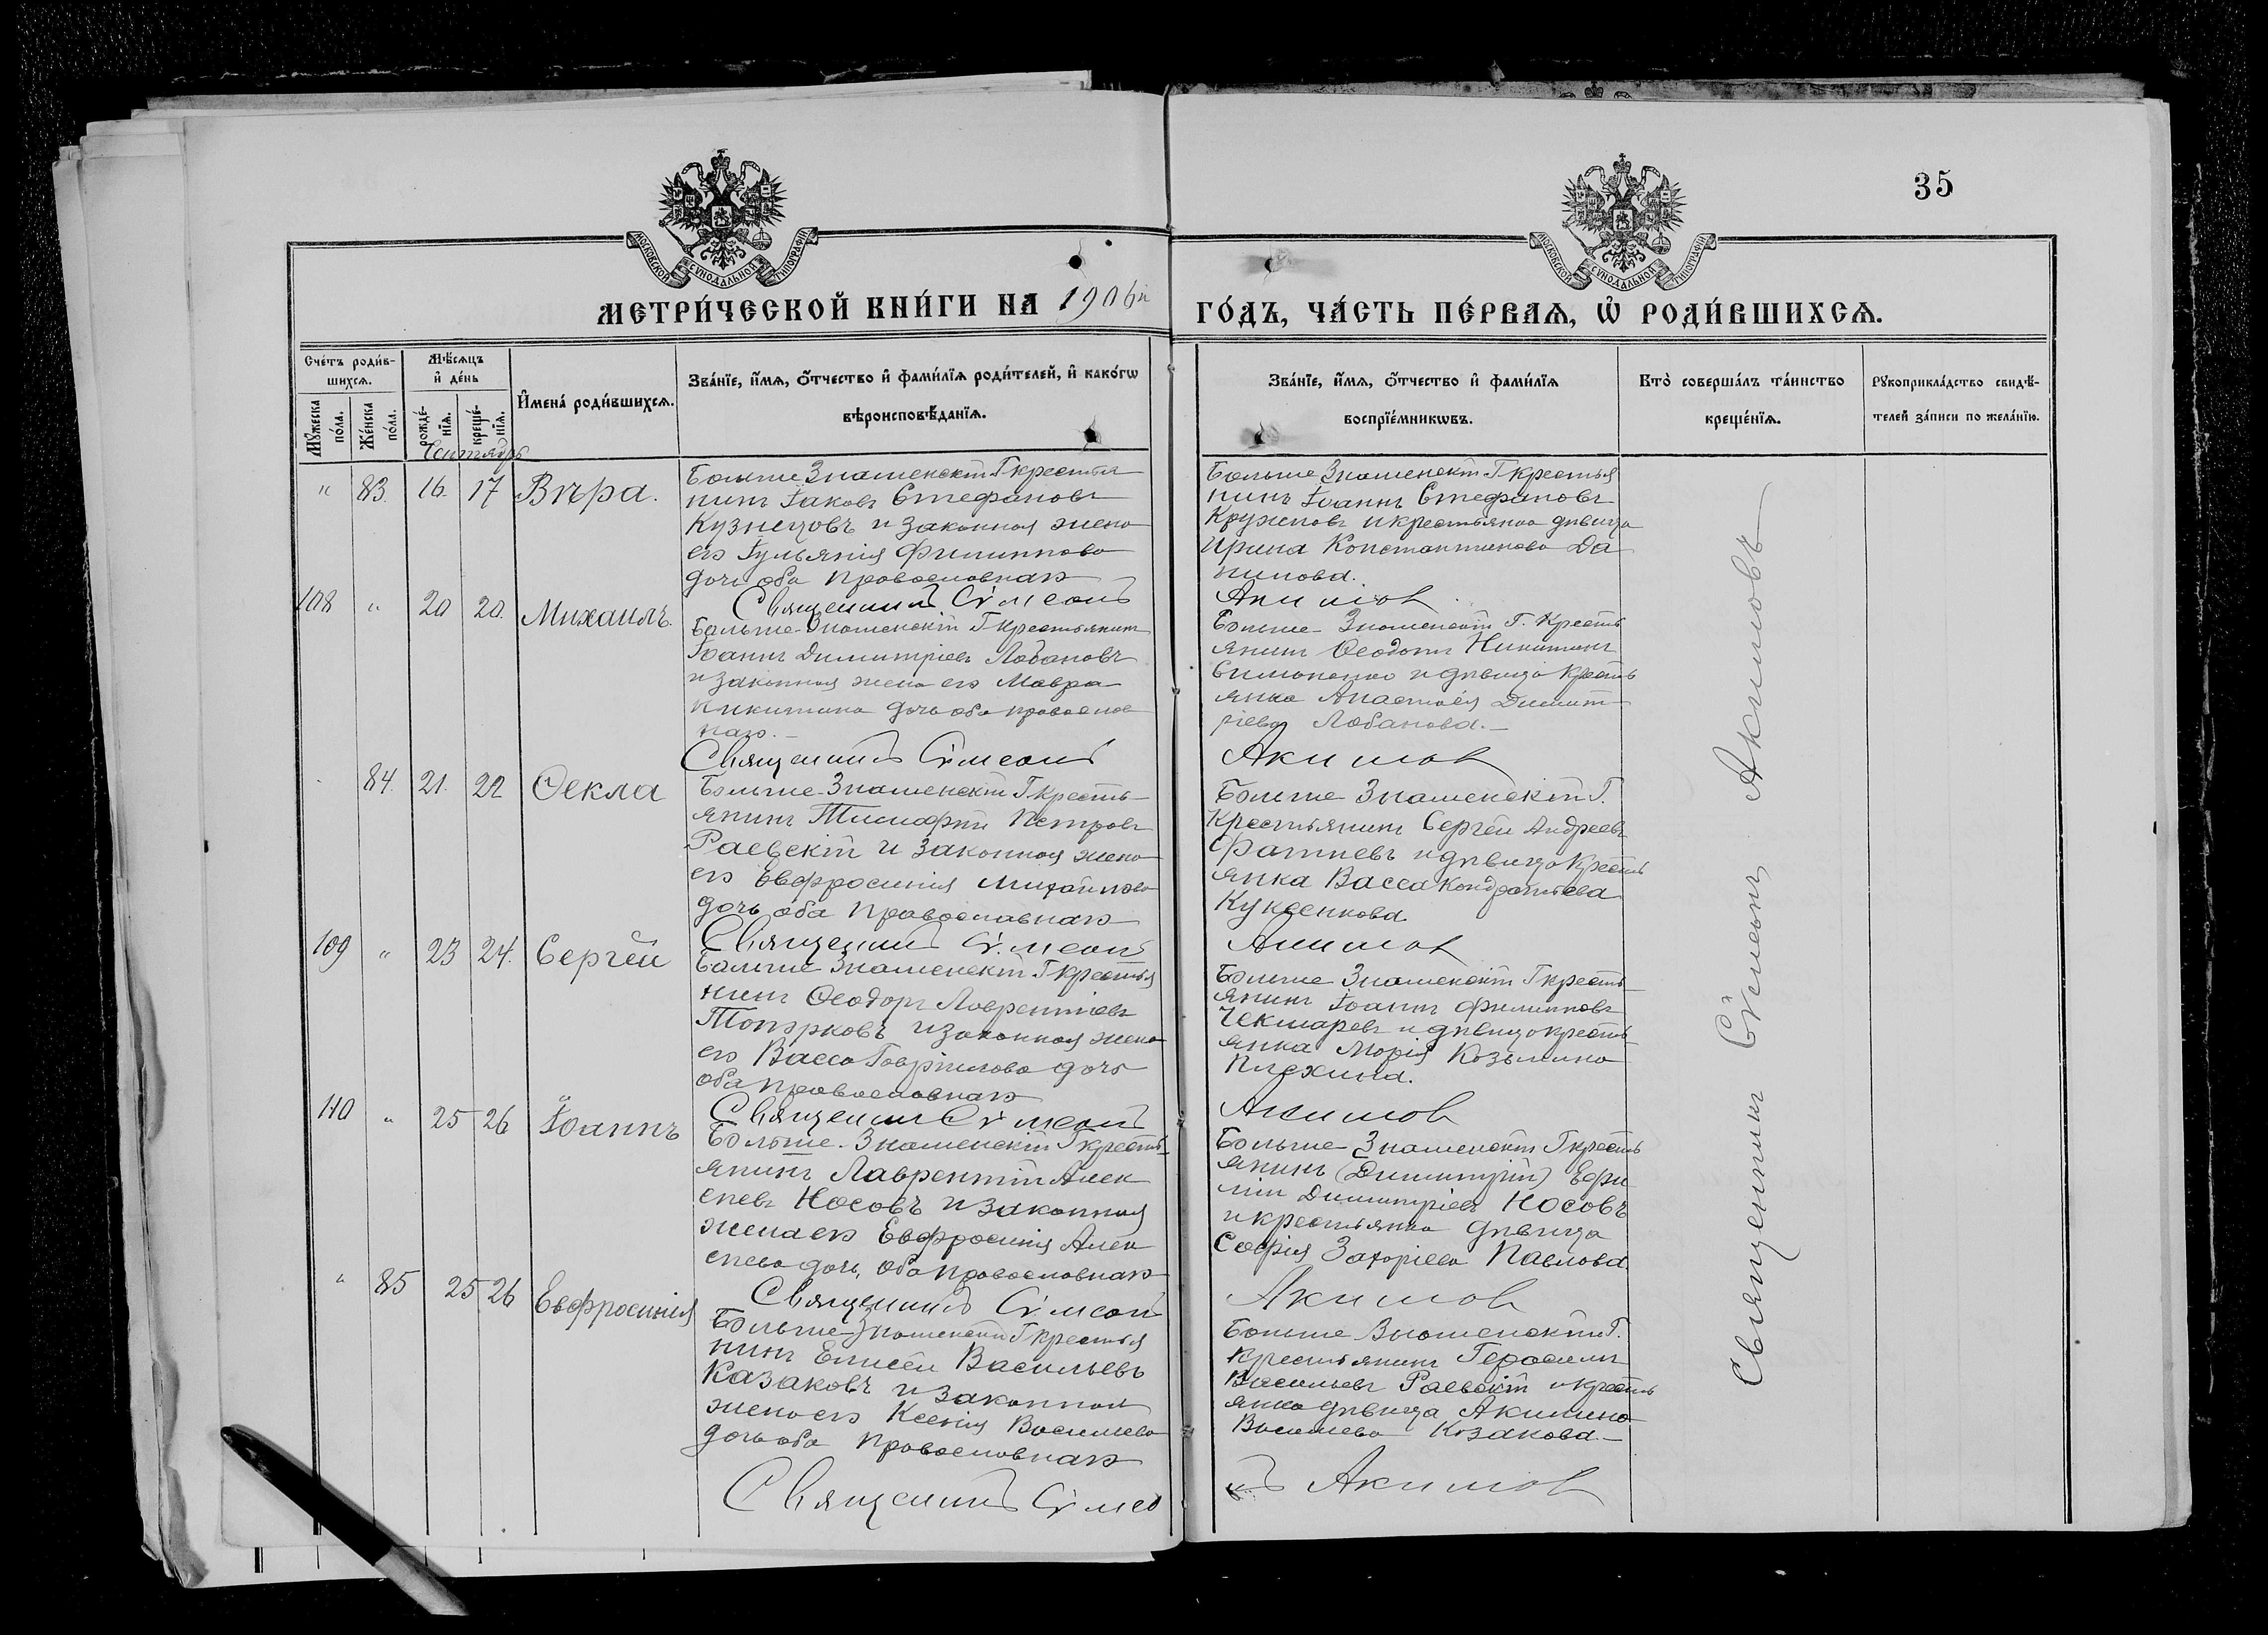 35
МОСКОВСКОЙ СУНОДАЛЬНОЙ ТИПОГРАФІИ
МОСКОВСКОЙ СУНОДАЛЬНОЙ ТИПОГРАФІИ
МЕТРИ́ЧЕСКОЙ КНИ́ГИ НА 1906й ГО́ДЪ, ЧА́СТЬ ПЕ́РВАѦ, Ѡ҆ РОДИ́ВШИХСѦ.
Сче́тъ роди́в-
шихсѧ.
Мꙋ́жеска по́ла.
Же́нска по́ла.
Мѣ́сѧцъ
и҆ де́нь
рожде́-
нїѧ.
креще́-
нїѧ.
И҆мена̀ роди́вшихсѧ.
Зва́нїе, и҆́мѧ, ѻ҆́тчество и҆ фами́лїѧ роди́телей, и҆ како́гѡ
вѣроисповѣ́данїѧ.
Зва́нїе, и҆́мѧ, ѻ҆́тчество и҆ фами́лїѧ
воспрїе́мникѡвъ.
Кто̀ соверша́лъ та́инство
креще́нїѧ.
Рꙋкоприкла́дство свидѣ́-
телей за́писи по жела́нїю.
Сентябрь
" 83. 16. 17 Вѣра.
Больше Знаменскій Г крестья
нинъ Іаковъ Стефановъ
Кузнецовъ и законная жена
его Іульянія Филиппова
дочь оба православнаго
Священникъ Сѵмеонъ
Больше Знаменскій Г крестья
нинъ Іоаннъ Стефановъ
и крестьянка дѣвица
Ирина Константинова Да
нилова.
Акимов
108 " 20 20. Михаилъ.
Больше-Знаменскій Г крестьянинъ
Іоаннъ Димитріевъ Лобановъ
и законная жена его Мавра
Никитина дочь оба православ
наго.
Священникъ Сѵмеонъ
Больше-Знаменскій Г. Кресть
янинъ Ѳеодотъ Никитинъ
Симоненко и дѣвица Кресть
янка Анастасія Димит
ріева Лобанова.
Акимов
84. 21. 22 Ѳекла
Больше-Знаменскій Г кресть
янинъ Тимофей Петровъ
Раевскій и законная жена
его Евфросинія Михайлова
дочь оба Православнаго
Священникъ Сѵмеонъ
Больше Знаменскій Г.
Крестьянинъ Сергѣй Андреевъ
и дѣвица Кресть
янка Васса Кондратьева
Куксенкова.
Акимов
109 " 23 24. Сергѣй
Больше Знаменскій Г крестья
нинъ Ѳеодоръ Лаврентіевъ
Топэрковъ и законная жена
его Васса Гавріилова дочь
оба православнаго
Священникъ Сѵмеонъ
Больше Знаменскій Г кресть
янинъ Іоаннъ Филипповъ
Чекмаревъ и дѣвица кресть
янка Марія Козьмина
Плехина.
Акимов
110 " 25 26 Іоаннъ
Больше-Знаменскій Г кресть
янинъ Лаврентій Алек
сѣевъ Носовъ и законная
жена его Евфросинія Алек
сѣева дочь, оба православнаго
Священникъ Сѵмеонъ
Больше-Знаменскій Г кресть
янинъ (Димитрій) Ефи
мій Димитріевъ Носовъ
и крестьянка дѣвица
Софія Захаріева Павлова
Акимов
" 85 25 26 Евфросинія
Больше-Знаменскій Г крестья
нинъ Елисей Васильевъ
Казаковъ и законная
жена его Ксенія Васильева
дочь оба Православнаго
Священникъ Сѵмео
Больше Знаменскій Г.
крестьянинъ Герасимъ
Васильевъ Раевскій и кресть
янка дѣвица Акилина
Васильева Козакова.
нъ Акимов
Священникъ Сѵмеонъ Акимовъ